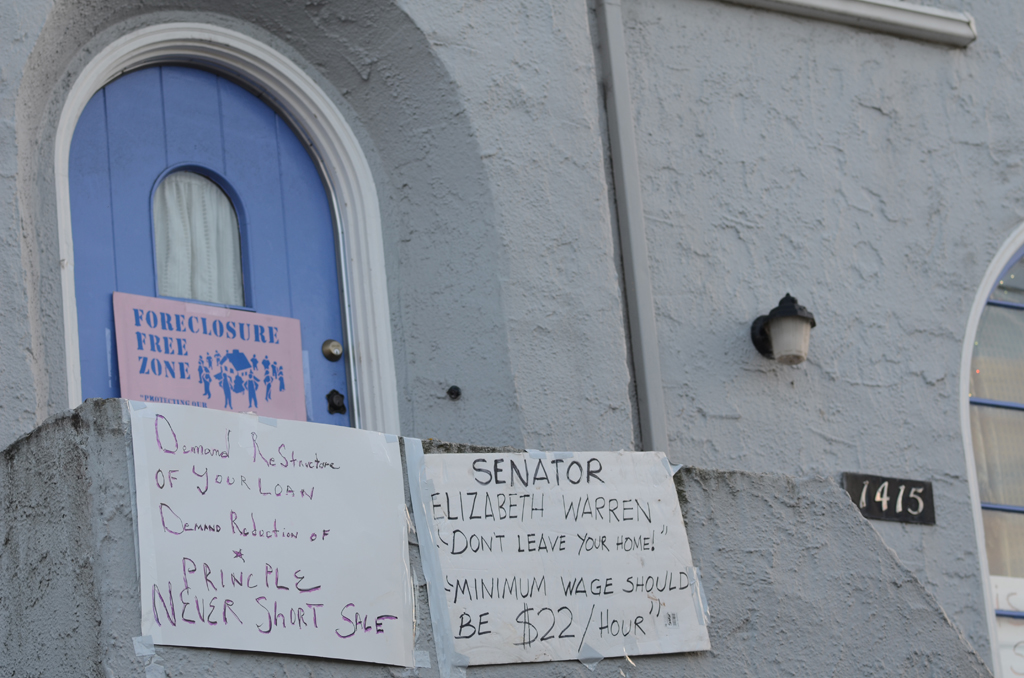 FORECLOSURE
FREE
ZONE
"PROTECTING OUR
Demand ReStructure
OF YOUR LOAN
Demand Reduction of
*
PRINCPLE
NEVER SHORT SALE
SENATOR
ELIZABETH WARREN
"DON'T LEAVE YOUR HOME!"
"MINIMUM WAGE SHOULD
BE $22/HOUR"
1415